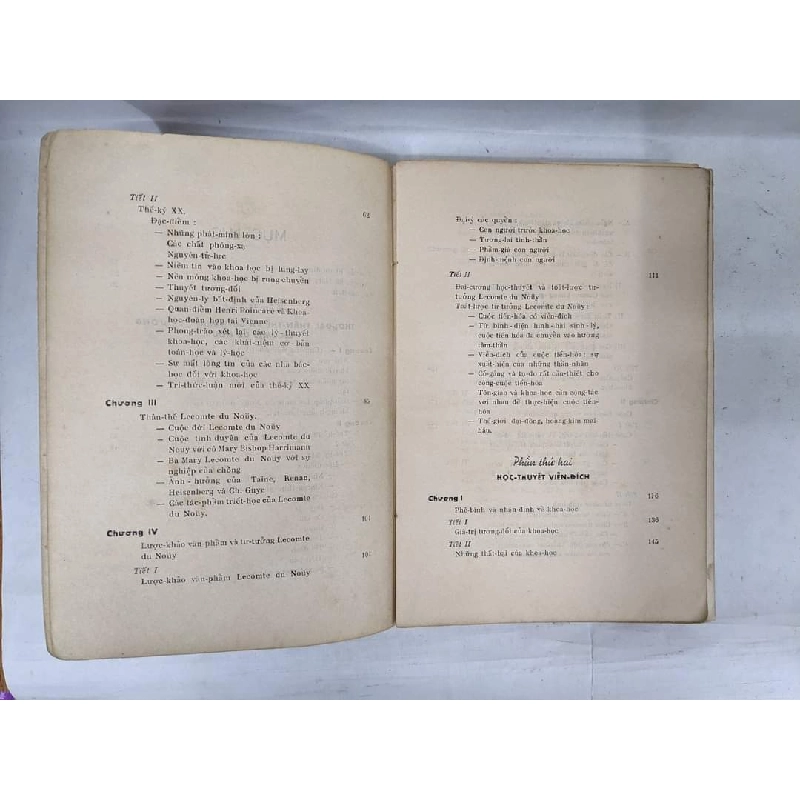 Tiết II
Thế-kỷ XX. 62
Đặc-điểm :
— Những phát-minh lớn :
Các chất phóng-xạ
Nguyên-tử-học
— Niềm tin vào khoa-học bị lung-lay
— Nền móng khoa-học bị rung-chuyển
— Thuyết tương-đối
— Nguyên-lý bất-định của Heisenberg
— Quan-điểm Henri Poincaré về Khoa-
học-đoàn họp tại Vienne
— Phong-trào xét lại các lý-thuyết
khoa-học, các khái-niệm cơ bản
toán-học và lý-học
— Sự mất lòng tin của các nhà bác-
học đối với khoa-học
— Tri-thức-luận mới của thế-kỷ XX
Chương III
Thân-thế Lecomte du Noüy.
— Cuộc đời Lecomte du Noüy
— Cuộc tình duyên của Lecomte du
Noüy với cô Mary Bishop Harrimann
— Bà Mary Lecomte du Noüy với sự
nghiệp của chồng
— Ảnh-hưởng của Taine, Renan,
Heisenberg và Ch. Guye
— Các tác-phẩm triết-học của Lecomte
du Noüy.
Chương IV
Lược-khảo văn-phẩm và tư-tưởng Lecomte
du Noüy
Tiết I
Lược-khảo văn-phẩm Lecomte du Noüy
Đại-ý các quyển :
— Con người trước khoa-học
— Tương-lai tinh-thần
— Phẩm-giá con người
— Định-mệnh con người
Tiết II 111
Đại-cương học-thuyết và triết-lược tư-
tưởng Lecomte du Noüy
Triết-lược tư-tưởng Lecomte du Noüy :
— Cuộc tiến-hóa có viễn-đích
— Từ bình-diện hình-hài sinh-lý,
cuộc tiến-hóa di chuyển vào hướng
tinh-thần
— Viễn-đích của cuộc tiến-hóa : sự
xuất-hiện của những thần-nhân
— Cố-gắng và tự-do rất cần-thiết cho
công-cuộc tiến-hóa
Tôn-giáo và khoa-học cần cộng-tác
với nhau để thực-hiện cuộc tiến-
hóa
Thế-giới đại-đồng, hoàng kim mai
hậu.
Phần thứ hai
HỌC-THUYẾT VIỄN-ĐÍCH
Chương I 136
Phê-bình và nhận-định về khoa-học
Tiết I 136
Giá-trị tương-đối của khoa-học
Tiết II 145
Những thất-bại của khoa-học